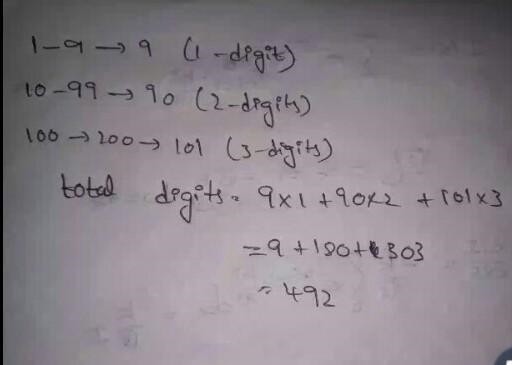 1-9 → 9 (1-digit)
10-99 → 90 (2-digits)
100 → 200 → 101 (3-digits)
total digits = 9x1 + 90x2 + 101x3
= 9 + 180 + 303
= 492